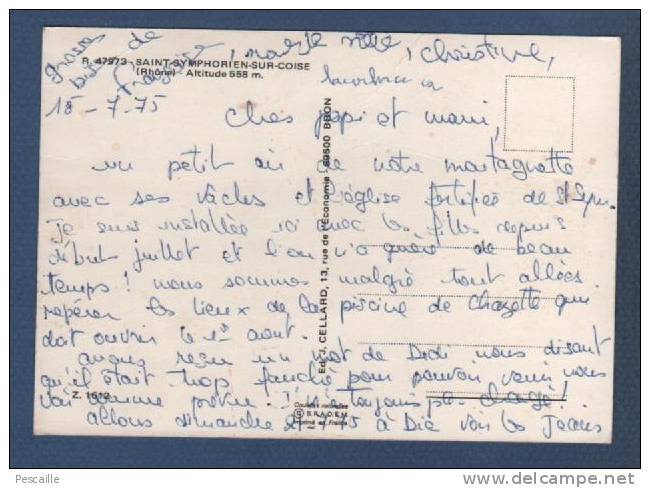 R. 47973 - SAINT-SYMPHORIEN-SUR-COISE
(Rhône) Altitude 558 m.
grosses bises de Françoise, Marie, Christine,
18-7-75
Chers papi et mami,
un petit air de notre montagnette
avec ses vaches et l'église fortifiée de St Sym.
Je suis installée ici avec les filles depuis
début juillet et l'on n'a guère de beau
temps! nous sommes malgré tout allées
repérer les lieux de la piscine de Chazelle qui
doit ouvrir le 1er août.
avons reçu un mot de Dédi nous disant
qu'il était trop fauché pour pouvoir venir nous
voir comme prévu! Il n'a toujours pas changé!
allons dimanche à Die voir les Jeans
Ed. J. CELLARD, 13, rue de l'Économie - 69500 BRON
Z. 1612
Couleurs naturelles
S.P.A.D.E.M.
Imprimé en France
Pescaille
http://www.delcampe.net